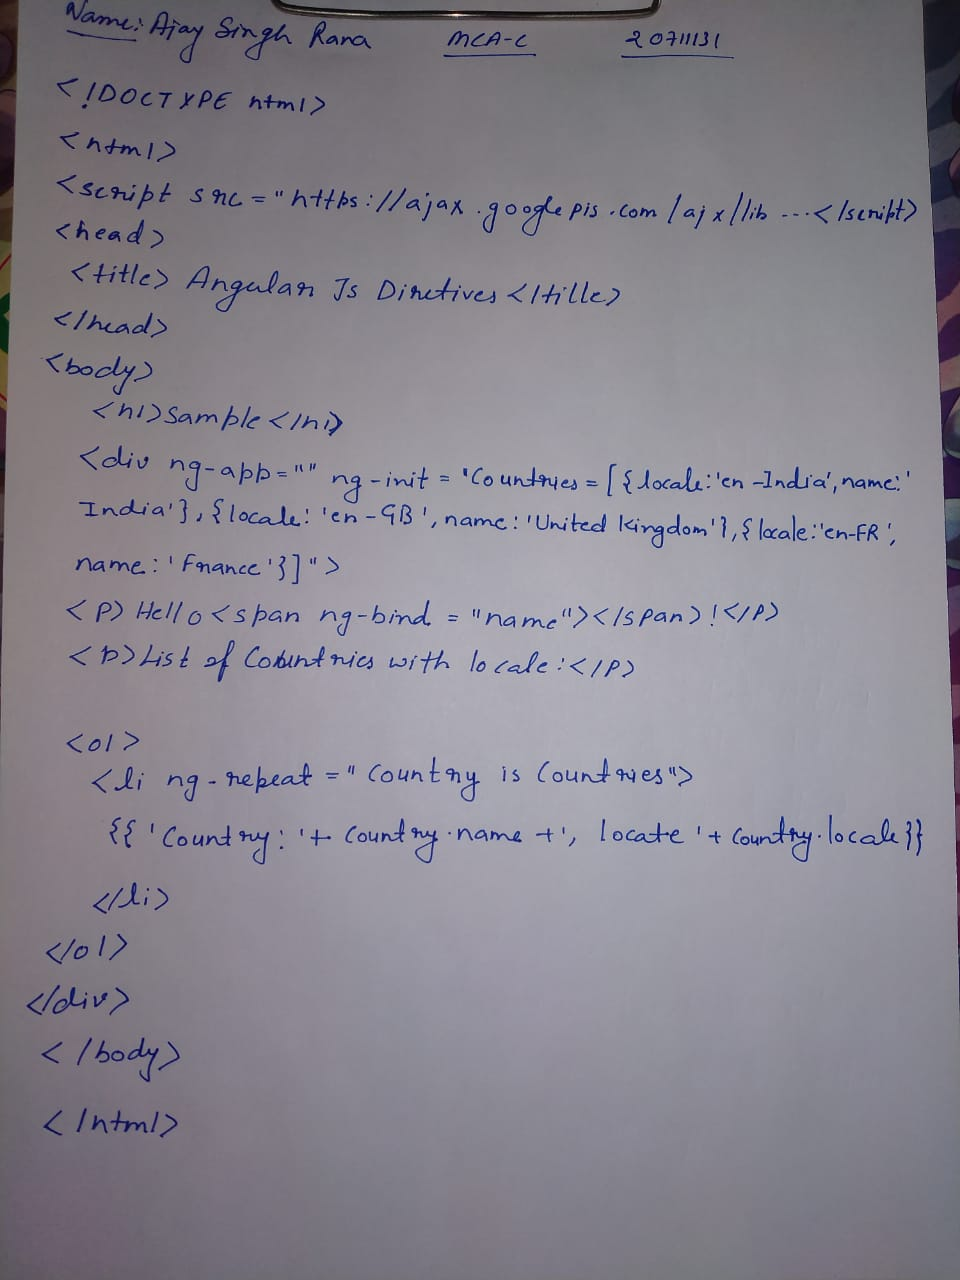 Name: Ajay Singh Rana MCA-C 20711131
<!DOCTYPE html>
<html>
<script src="https://ajax.googlepis.com/ajx/lib ...</script>
<head>
<title> Angular Js Dirctives </title>
</head>
<body>
<h1>Sample</h1>
<div ng-app="" ng-init = "Countries = [{locale:'en-India', name:'
India'}, {locale: 'en-GB', name: 'United kingdom'}, {locale:'en-FR',
name: 'France'}]">
<P> Hello <span ng-bind = "name"></span>!</P>
<p> List of Countries with locale:</P>
<ol>
<li ng-repeat = "Country is Countries">
{{ 'Country: '+ Country.name +', locate '+ Country.locale}}
</li>
</ol>
</div>
</body>
</html>